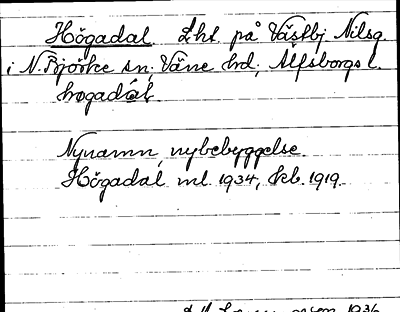 Högadal. Lht. på Västbj. Nilsg.
i N. Björke sn, Väne hd, Älfsborgs l.
högadal.
Nynamn, nybebyggelse.
Högadal ml. 1934, kb. 1919.
1936